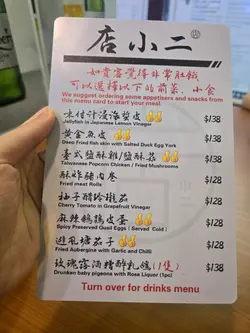 店小二
如貴客覺得非常肚餓
可以選擇以下的前菜、小食
We suggest ordering some appetisers and snacks from
this menu card to start your meal
味付汁浸海蜇皮 $138
Jellyfish in Japanese Lemon Vinegar
黃金魚皮 $138
Deep Fried fish skin with Salted Duck Egg York
臺式鹽酥鷄/鹽酥菇 $138
Taiwanese Popcorn Chicken / Fried Mushrooms
酥炸豬肉卷 $138
Fried meat Rolls
柚子醋玲瓏茄 $128
Cherry Tomato in Grapefruit Vinegar
麻辣鵪鶉皮蛋 $128
Spicy Preserved Quail Eggs (Served Cold)
避風塘茄子 $128
Fried Aubergine with Garlic and Chilli
玫瑰露酒糟醉乳鴿(1隻) $138
Drunken baby pigeons with Rose Liquor (1pc)
Turn over for drinks menu